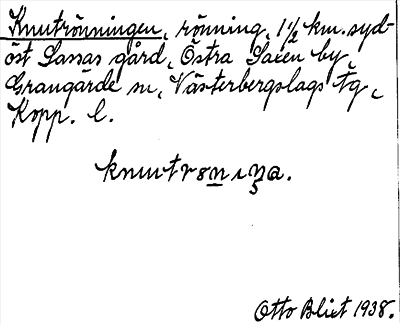 Knutrönningen, rönning, 1½ km. syd-
öst Lassas gård, Östra Saxen by,
Grangärde sn, Västerbergslags tg,
Kopp. l.
knutrön
Otto Blixt 1938.